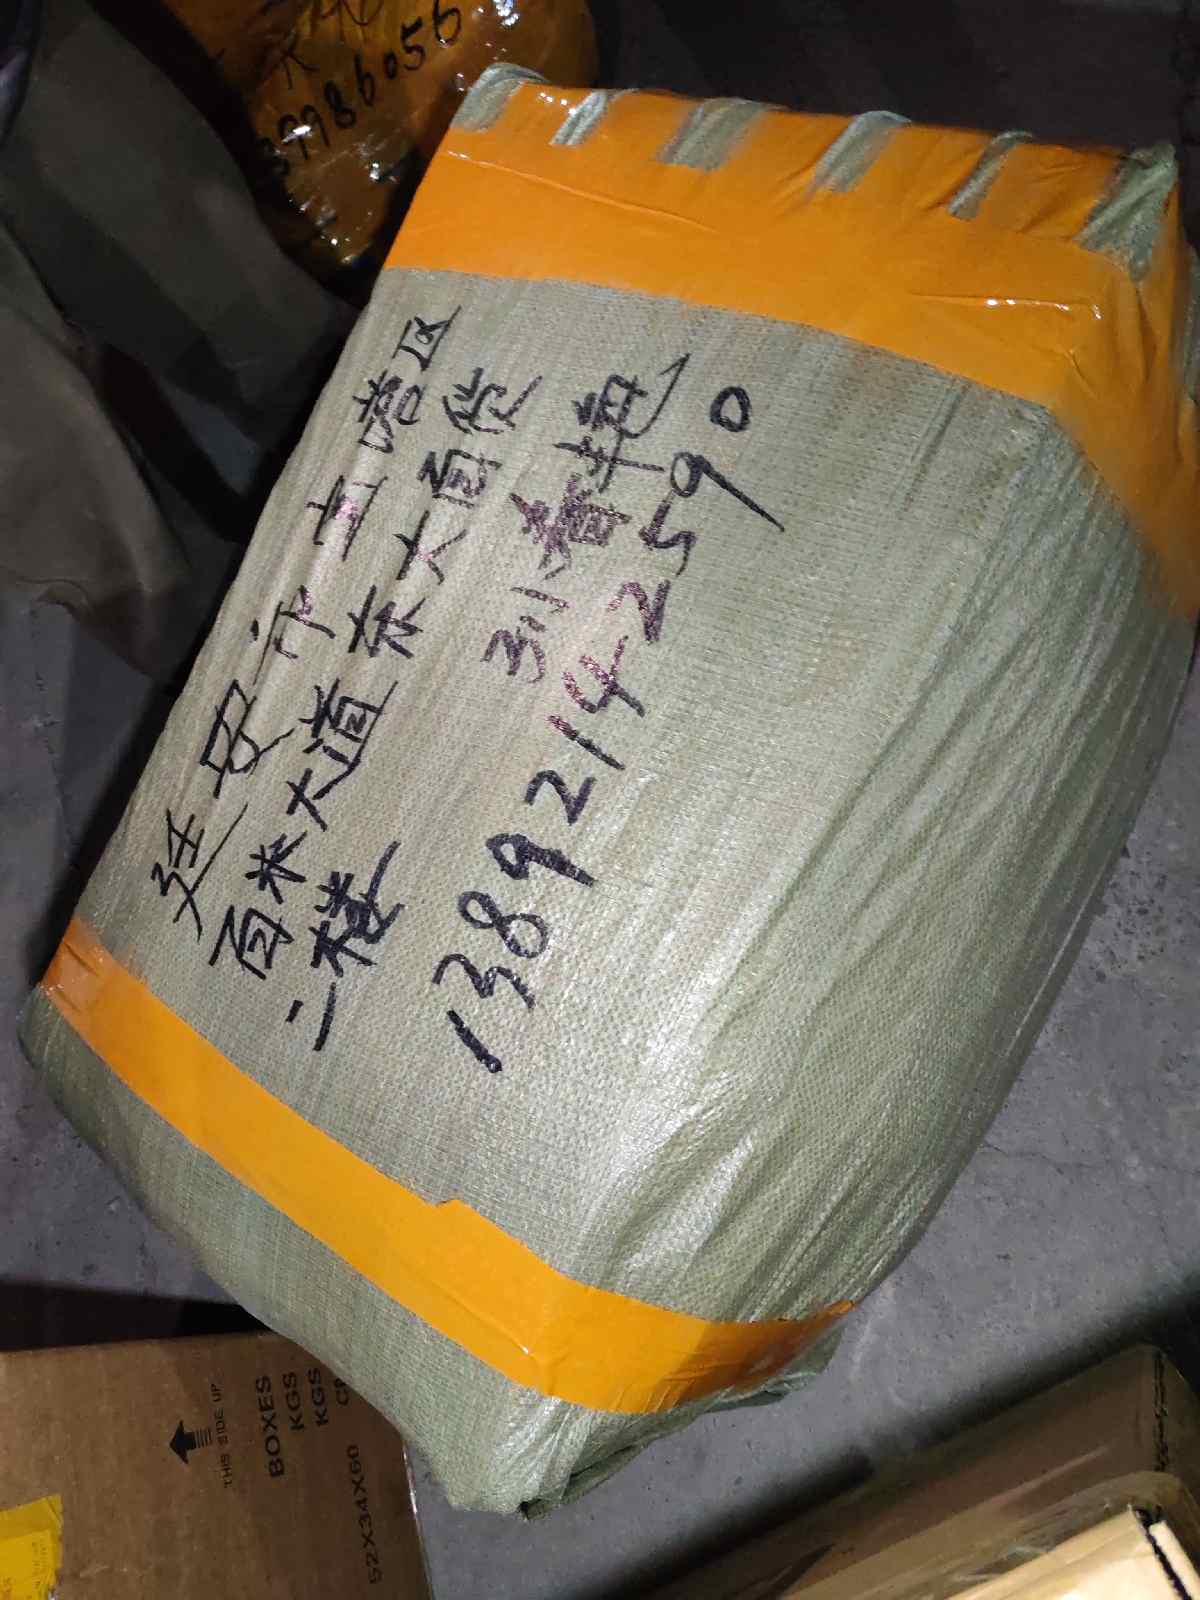 延安市宝塔区
百米大道东大百货
二楼
刘春艳
13892142590
39986056
THIS SIDE UP
BOXES
KGS
KGS
52X34X60